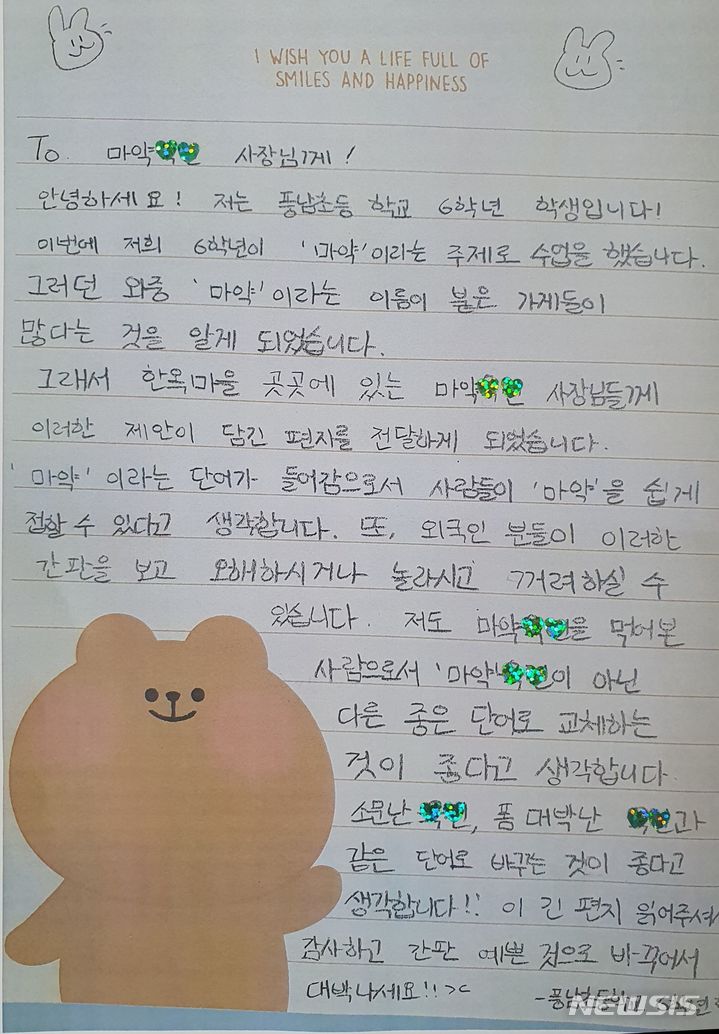 I WISH YOU A LIFE FULL OF
SMILES AND HAPPINESS
To. 마약 사장님께!
안녕하세요! 저는 풍남초등 학교 6학년 학생입니다!
이번에 저희 6학년이 '마약'이라는 주제로 수업을 했습니다.
그러던 와중 '마약'이라는 이름이 붙은 가게들이
많다는 것을 알게 되었습니다.
그래서 한옥마을 곳곳에 있는 마약 사장님들께
이러한 제안이 담긴 편지를 전달하게 되었습니다.
'마약'이라는 단어가 들어감으로서 사람들이 '마약'을 쉽게
접할 수 있다고 생각합니다. 또, 외국인 분들이 이러한
간판을 보고 오해하시거나 놀라시고 꺼려하실 수
있습니다. 저도 마약을 먹어본
사람으로서 '마약'이 아닌
다른 좋은 단어로 교체하는
것이 좋다고 생각합니다.
소문난, 폼 대박난 과
같은 단어로 바꾸는 것이 좋다고
생각합니다!! 이 긴 편지 읽어주셔서
감사하고 간판 예쁜 것으로 바꾸어서
대박나세요!! ><
-풍남초등학교
NEWSIS